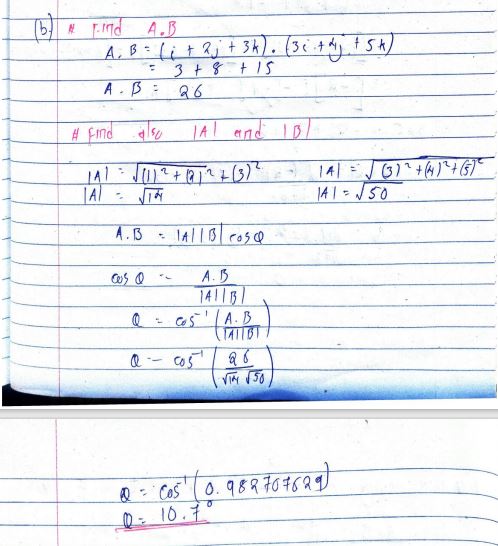 (b) # Find A.B
A.B = (i + 2j + 3k) . (3i + 4j + 5k)
= 3 + 8 + 15
A.B = 26
# Find also |A| and |B|
|A| = √(1)² + (2)² + (3)² |A| = √(3)² + (4)² + (5)²
|A| = √14 |A| = √50
A.B = |A||B| cosQ
cosQ = A.B / |A||B|
Q = cos⁻¹ (A.B / |A||B|)
Q = cos⁻¹ (26 / √14 √50)
Q = cos⁻¹ (0.982707629)
Q = 10.7°